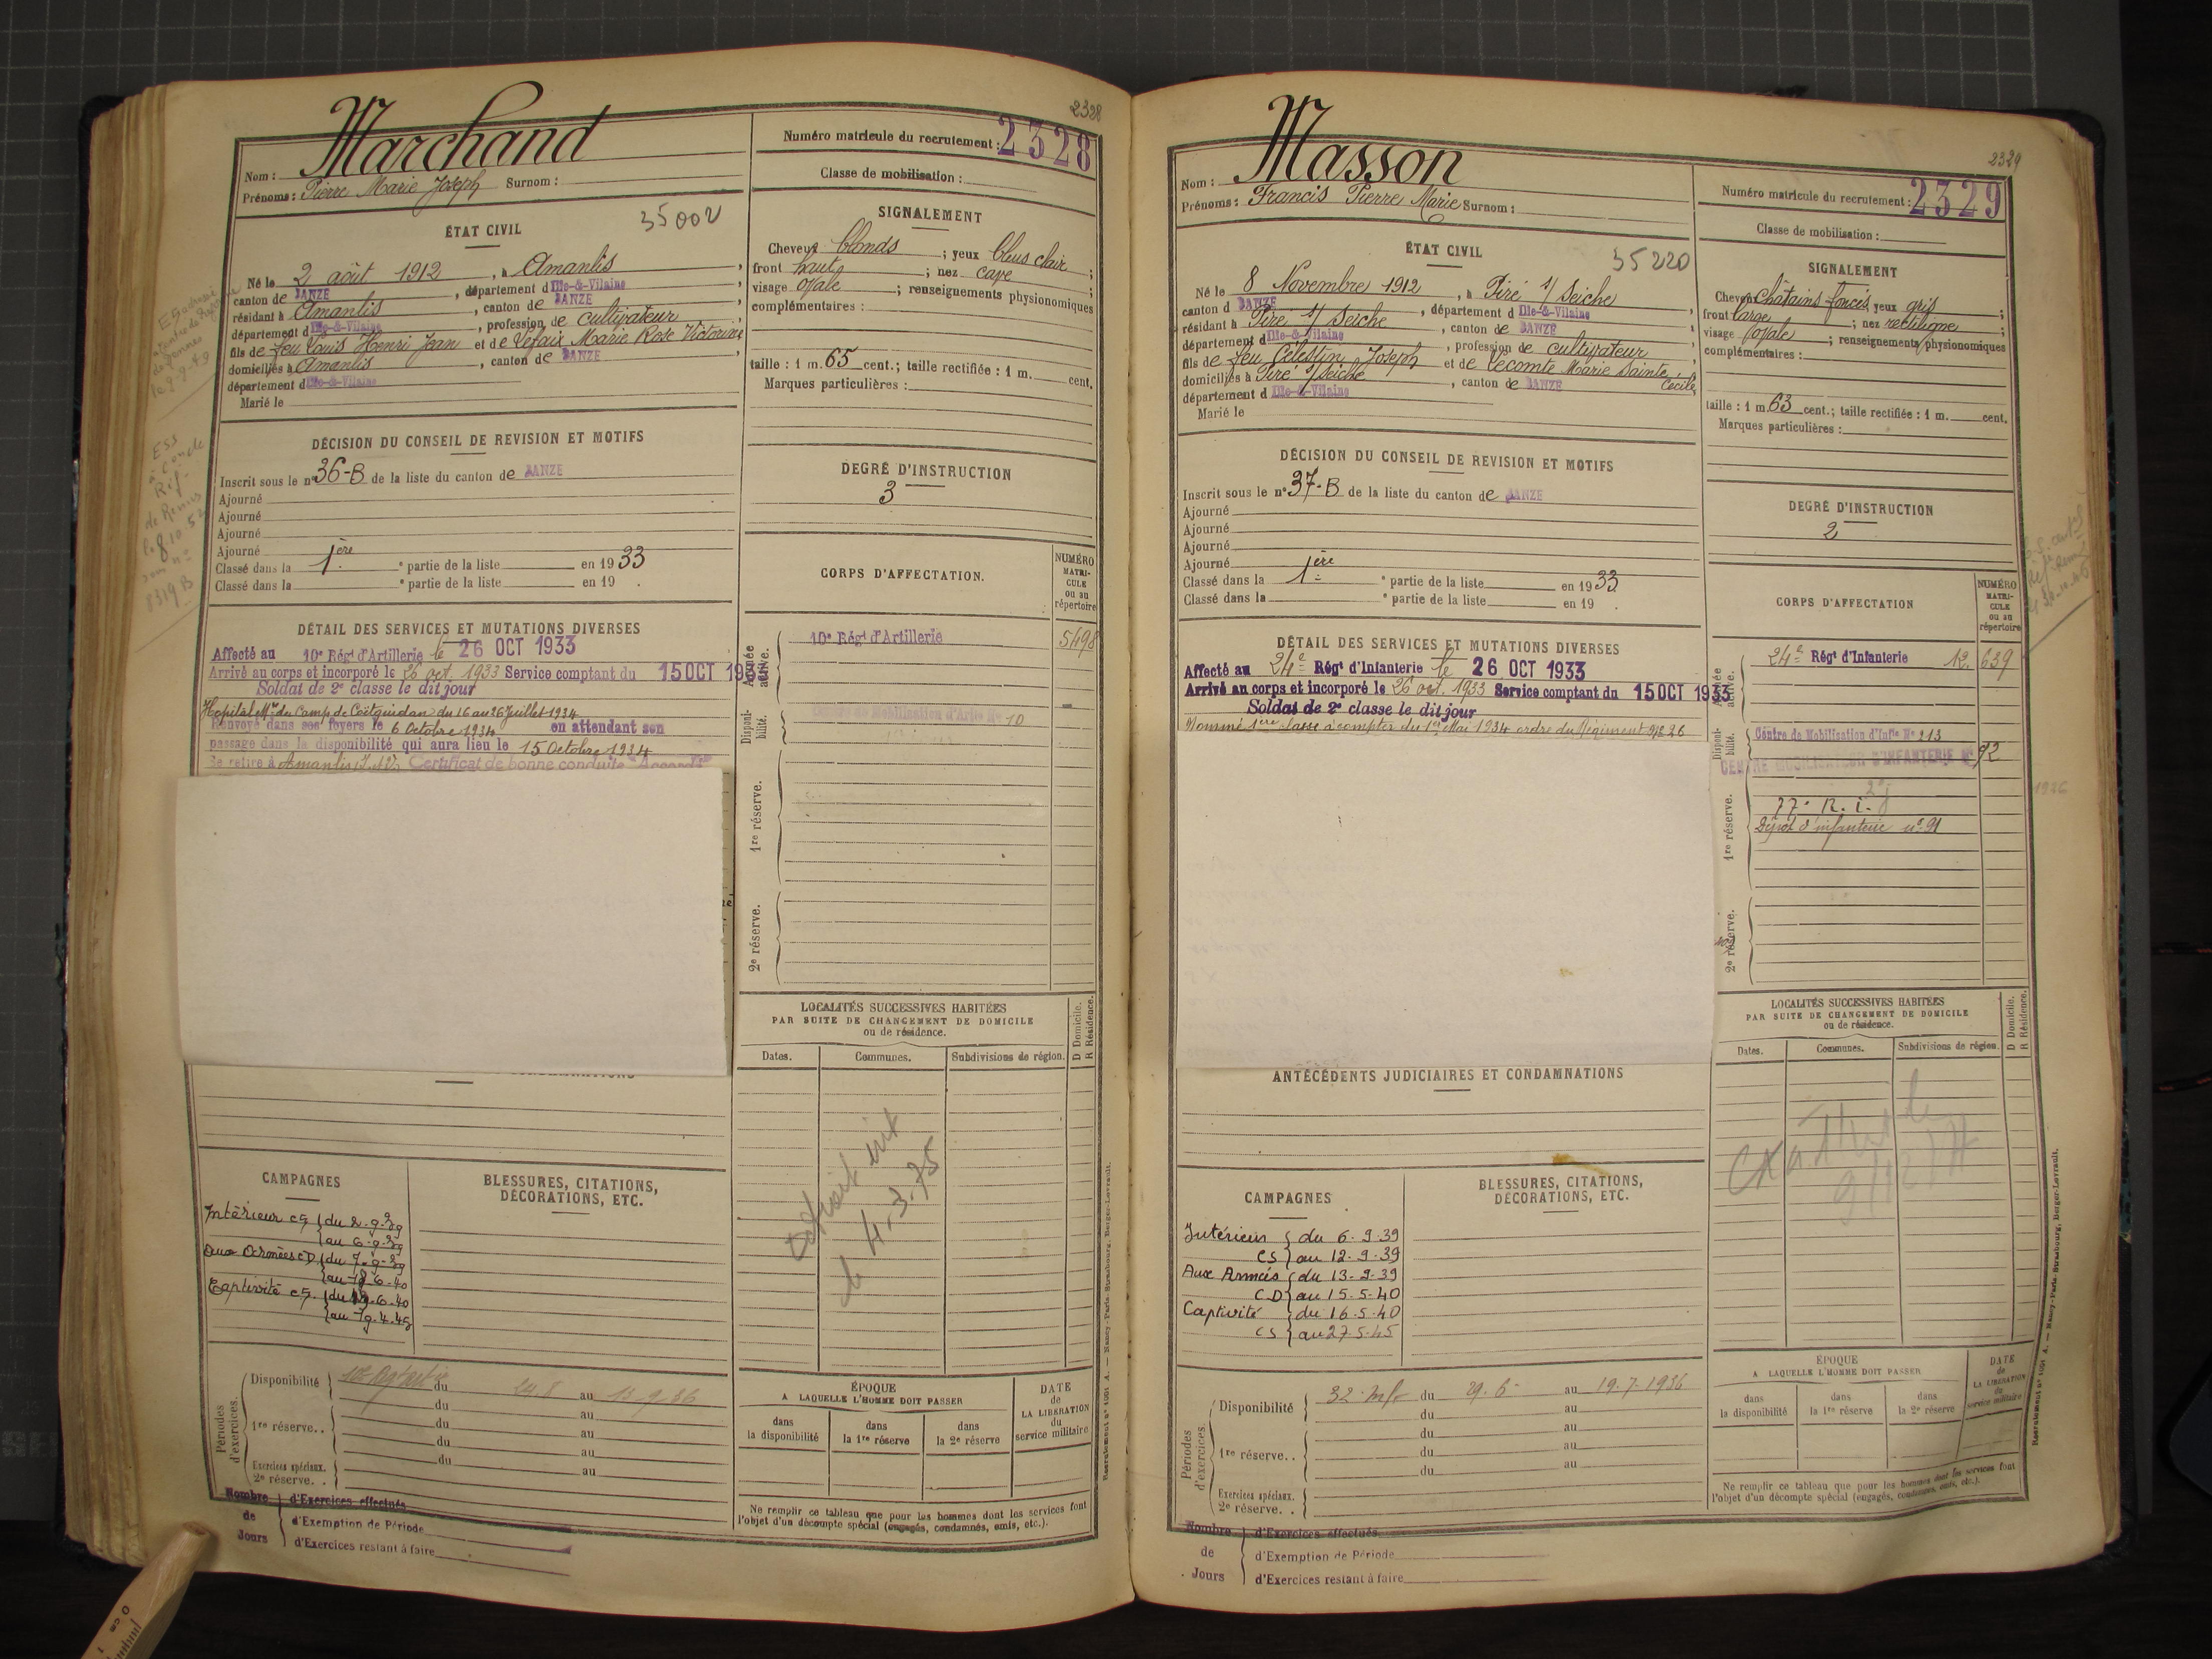 2328
Nom : Marchand
Prénoms : Pierre Marie Joseph Surnom :
Numéro matricule du recrutement : 2328
Classe de mobilisation :
ÉTAT CIVIL
35002
Né le 2 août 1912, à Amanlis,
canton de JANZE, département d Ille-&-Vilaine,
résidant à Amanlis, canton de JANZE,
département d Ille-&-Vilaine, profession de cultivateur
fils de feu Louis Henri Jean et de Lefaix Marie Rose Victorine,
domiciliés à Amanlis, canton de JANZE,
département d Ille-&-Vilaine
Marié le
SIGNALEMENT
Cheveux blonds ; yeux bleus clair ;
front haut ; nez cave ;
visage ovale ; renseignements physionomiques
complémentaires :
taille : 1 m. 65 cent. ; taille rectifiée : 1 m. cent.
Marques particulières :
DÉCISION DU CONSEIL DE REVISION ET MOTIFS
Inscrit sous le n° 36-B de la liste du canton de JANZE
Ajourné
Ajourné
Ajourné
Ajourné
Classé dans la 1ère e partie de la liste en 1933
Classé dans la e partie de la liste en 19 .
DEGRÉ D'INSTRUCTION
3
CORPS D'AFFECTATION.
NUMÉRO
MATRI-
CULE
ou au
répertoire
DÉTAIL DES SERVICES ET MUTATIONS DIVERSES
Affecté au 10e Régt d'Artillerie le 26 OCT 1933
Arrivé au corps et incorporé le 26 oct. 1933 Service comptant du 15 OCT 1933
Soldat de 2e classe le dit jour
Hopital Mre du Camp de Coëtquidan du 16 au 26 Juillet 1934
Renvoyé dans ses foyers le 6 Octobre 1934 en attendant son
passage dans la disponibilité qui aura lieu le 15 Octobre 1934
Se retire à Amanlis (I.&V.) Certificat de bonne conduite "Accordé"
Armée
active.
10e Régt d'Artillerie 5498
Disponi-
bilité.
Centre de Mobilisation d'Artie N° 10
1re réserve.
2e réserve.
LOCALITÉS SUCCESSIVES HABITÉES
PAR SUITE DE CHANGEMENT DE DOMICILE
ou de résidence.
Dates. Communes. Subdivisions de région.
D Domicile.
R Résidence.
le 4.3.75
CAMPAGNES
BLESSURES, CITATIONS,
DÉCORATIONS, ETC.
Intérieur CS du 2-9-39
au 6-9-39
Aux Armées CD du 7-9-39
au 18-6-40
Captivité CS du 19-6-40
au 19-4-45
Périodes
d'exercices.
Disponibilité du 24.8 au 13.9.36
du au
1re réserve. . du au
du au
Exercices spéciaux. du au
2e réserve. .
ÉPOQUE
A LAQUELLE L'HOMME DOIT PASSER
dans
la disponibilité
dans
la 1re réserve
dans
la 2e réserve
DATE
de
LA LIBÉRATION
du
service militaire
Ne remplir ce tableau que pour les hommes dont les services font
l'objet d'un décompte spécial (engagés, condamnés, omis, etc.).
Nombre
de
Jours
d'Exercices effectués
d'Exemption de Période
d'Exercices restant à faire
2329
Nom : Masson
Prénoms : Francis Pierre Marie Surnom :
Numéro matricule du recrutement : 2329
Classe de mobilisation :
ÉTAT CIVIL
35220
Né le 8 Novembre 1912, à Piré s/ Seiche
canton d JANZE, département d Ille-&-Vilaine
résidant à Piré s/ Seiche, canton de JANZE
département d Ille-&-Vilaine, profession de cultivateur
fils de feu Célestin Joseph et de Lecomte Marie Sainte Cécile,
domiciliés à Piré s/ Seiche, canton de JANZE
département d Ille-&-Vilaine
Marié le
SIGNALEMENT
Cheveux châtains foncés yeux gris ;
front large ; nez rectiligne ;
visage ovale ; renseignements physionomiques
complémentaires :
taille : 1 m. 63 cent. ; taille rectifiée : 1 m. cent.
Marques particulières :
DÉCISION DU CONSEIL DE REVISION ET MOTIFS
Inscrit sous le n° 37-B de la liste du canton de JANZE
Ajourné
Ajourné
Ajourné
Ajourné
Classé dans la 1ère e partie de la liste en 1933.
Classé dans la e partie de la liste en 19 .
DEGRÉ D'INSTRUCTION
2
CORPS D'AFFECTATION
NUMÉRO
MATRI-
CULE
ou au
répertoire
DÉTAIL DES SERVICES ET MUTATIONS DIVERSES
Affecté au 24e Régt d'Infanterie le 26 OCT 1933
Arrivé au corps et incorporé le 26 oct. 1933 Service comptant du 15 OCT 1933
Soldat de 2e classe le dit jour
Nommé 1ère classe à compter du 1er Mai 1934 ordre du Régiment N° 26
Armée
active.
24e Régt d'Infanterie 12. 639
Disponi-
bilité.
Centre de Mobilisation d'Infie N° 213
CENTRE MOBILISATEUR D'INFANTERIE N° 92
77e R.I.
Dépôt d'infanterie n° 91
1re réserve.
2e réserve.
LOCALITÉS SUCCESSIVES HABITÉES
PAR SUITE DE CHANGEMENT DE DOMICILE
ou de résidence.
Dates. Communes. Subdivisions de région.
D Domicile.
R Résidence.
ANTÉCÉDENTS JUDICIAIRES ET CONDAMNATIONS
CAMPAGNES
BLESSURES, CITATIONS,
DÉCORATIONS, ETC.
Intérieur du 6.9.39
CS au 12.9.39
Aux Armées du 13.9.39
CD au 15.5.40
Captivité du 16.5.40
CS au 27.5.45
Périodes
d'exercices.
Disponibilité du 29.6 au 19.7.1936
du au
1re réserve. . du au
du au
du au
Exercices spéciaux.
2e réserve. .
ÉPOQUE
A LAQUELLE L'HOMME DOIT PASSER
dans
la disponibilité
dans
la 1re réserve
dans
la 2e réserve
DATE
de
LA LIBÉRATION
du
service militaire
Ne remplir ce tableau que pour les hommes dont les services font
l'objet d'un décompte spécial (engagés, condamnés, omis, etc.).
Nombre
de
Jours
d'Exercices effectués
d'Exemption de Période
d'Exercices restant à faire